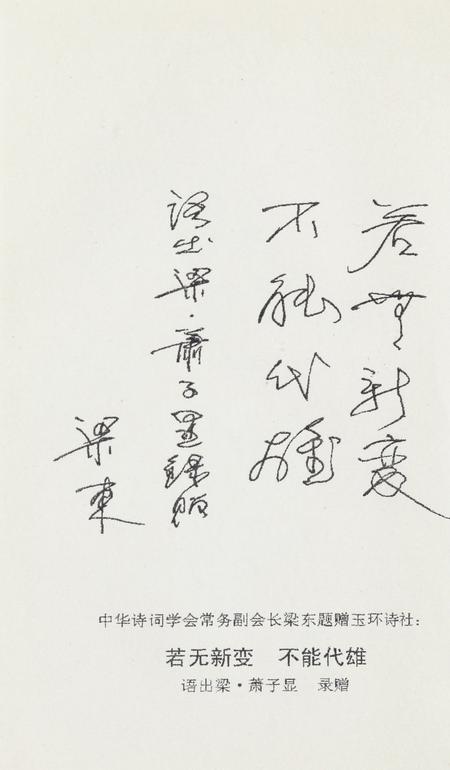 若無新变
不能代雄
语出梁·萧子显录赠
梁东
中华诗词学会常务副会长梁东题赠玉环诗社：
若无新变　不能代雄
语出梁·萧子显　录赠